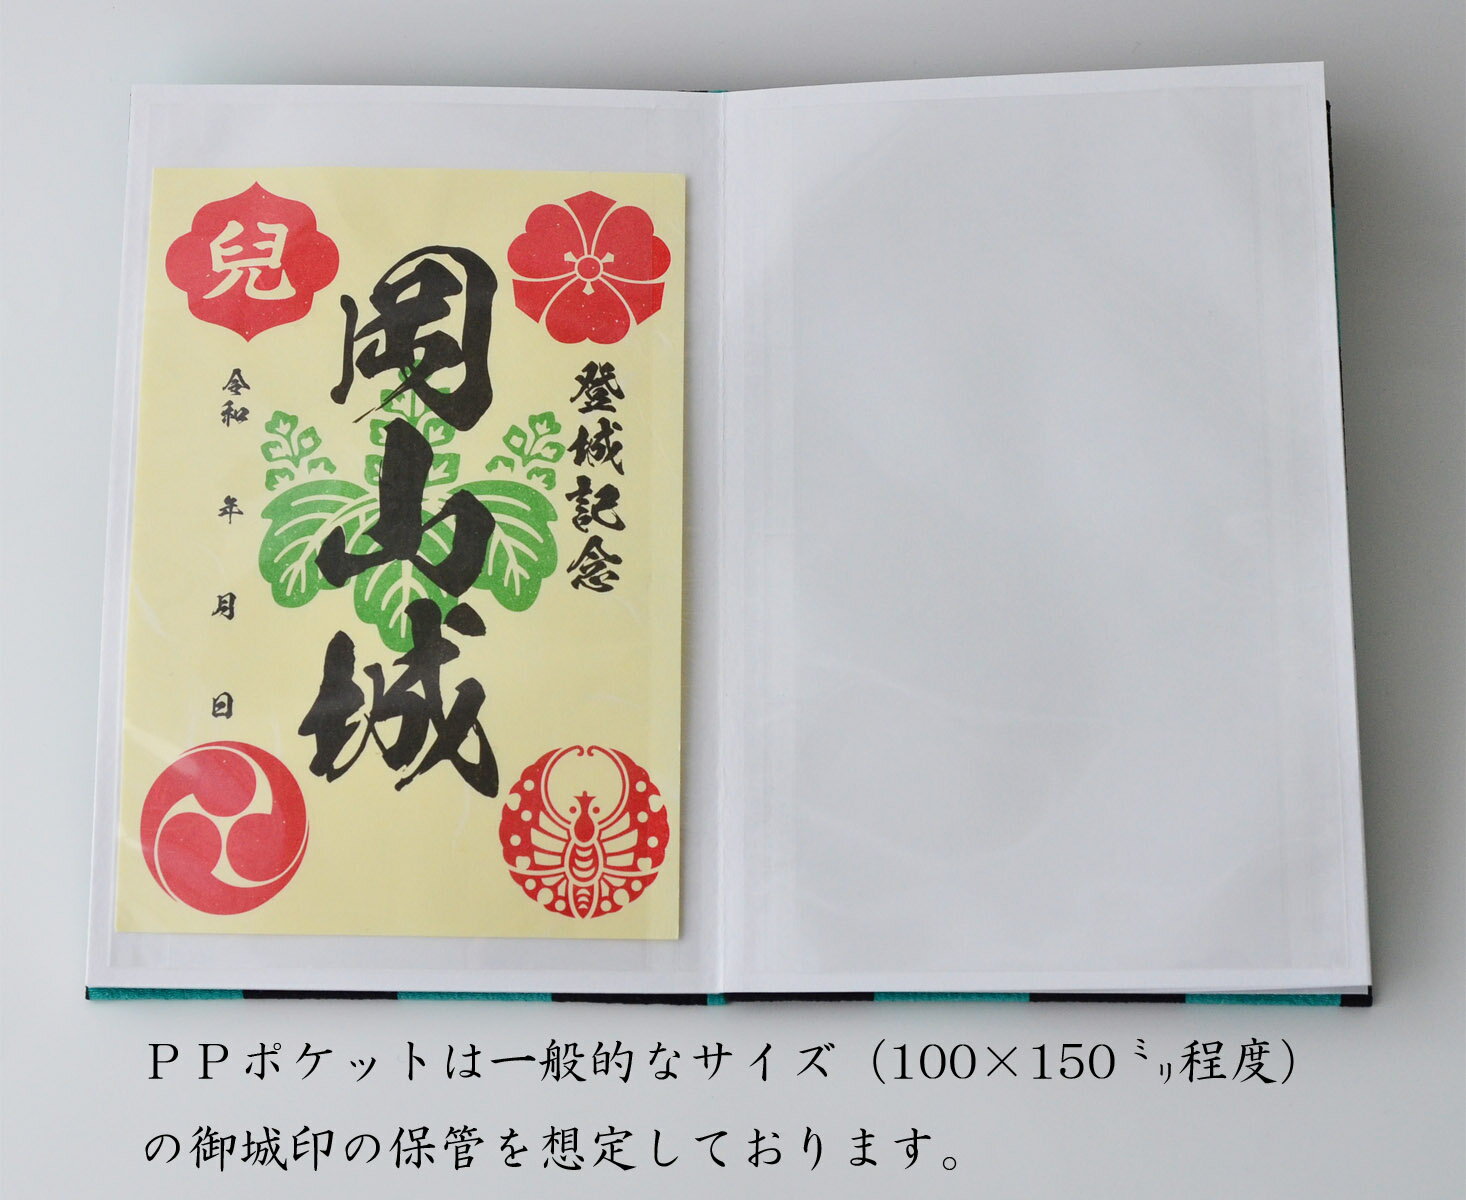 登城記念
岡山城
兒
令和　年　月　日
ＰＰポケットは一般的なサイズ（100×150㍉程度）
の御城印の保管を想定しております。